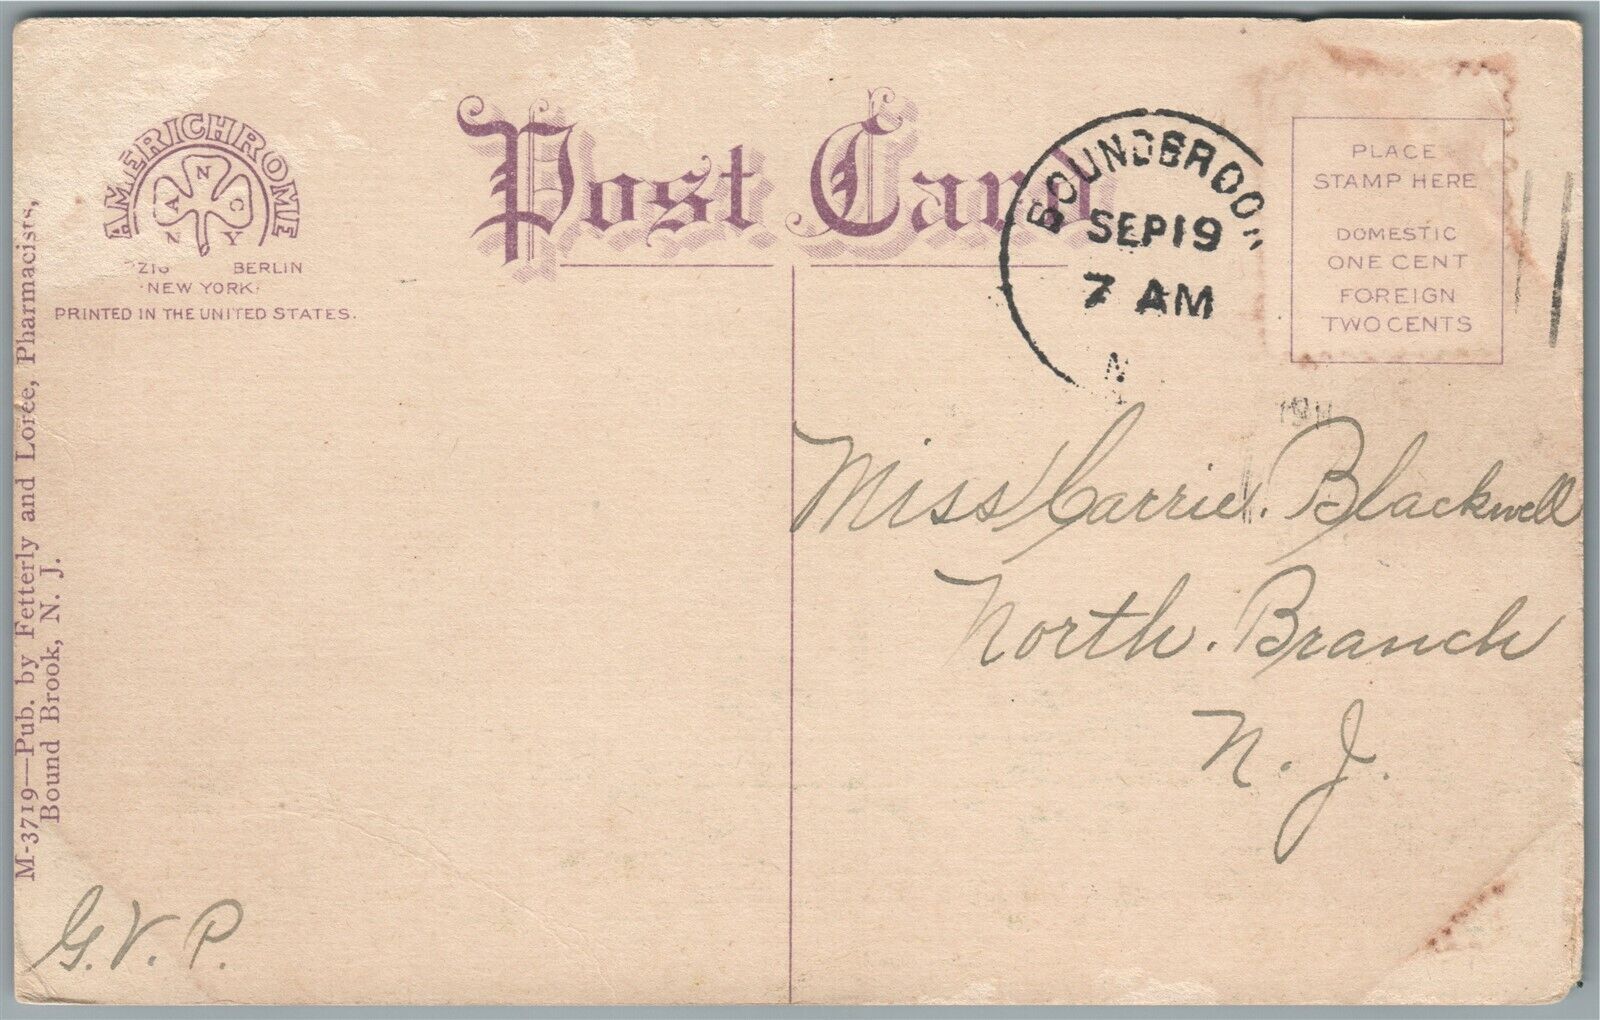 AMERICHROME
A N C
N Y
BERLIN
NEW YORK
PRINTED IN THE UNITED STATES.
M-3719—Pub. by Fetterly and Loree, Pharmacists,
Bound Brook, N. J.
Post Card
BOUNDBROOK
SEP 19
7 AM
N.
PLACE
STAMP HERE
DOMESTIC
ONE CENT
FOREIGN
TWO CENTS
Miss Carrie. Blackwell
North. Branch
N. J.
G. V. P.